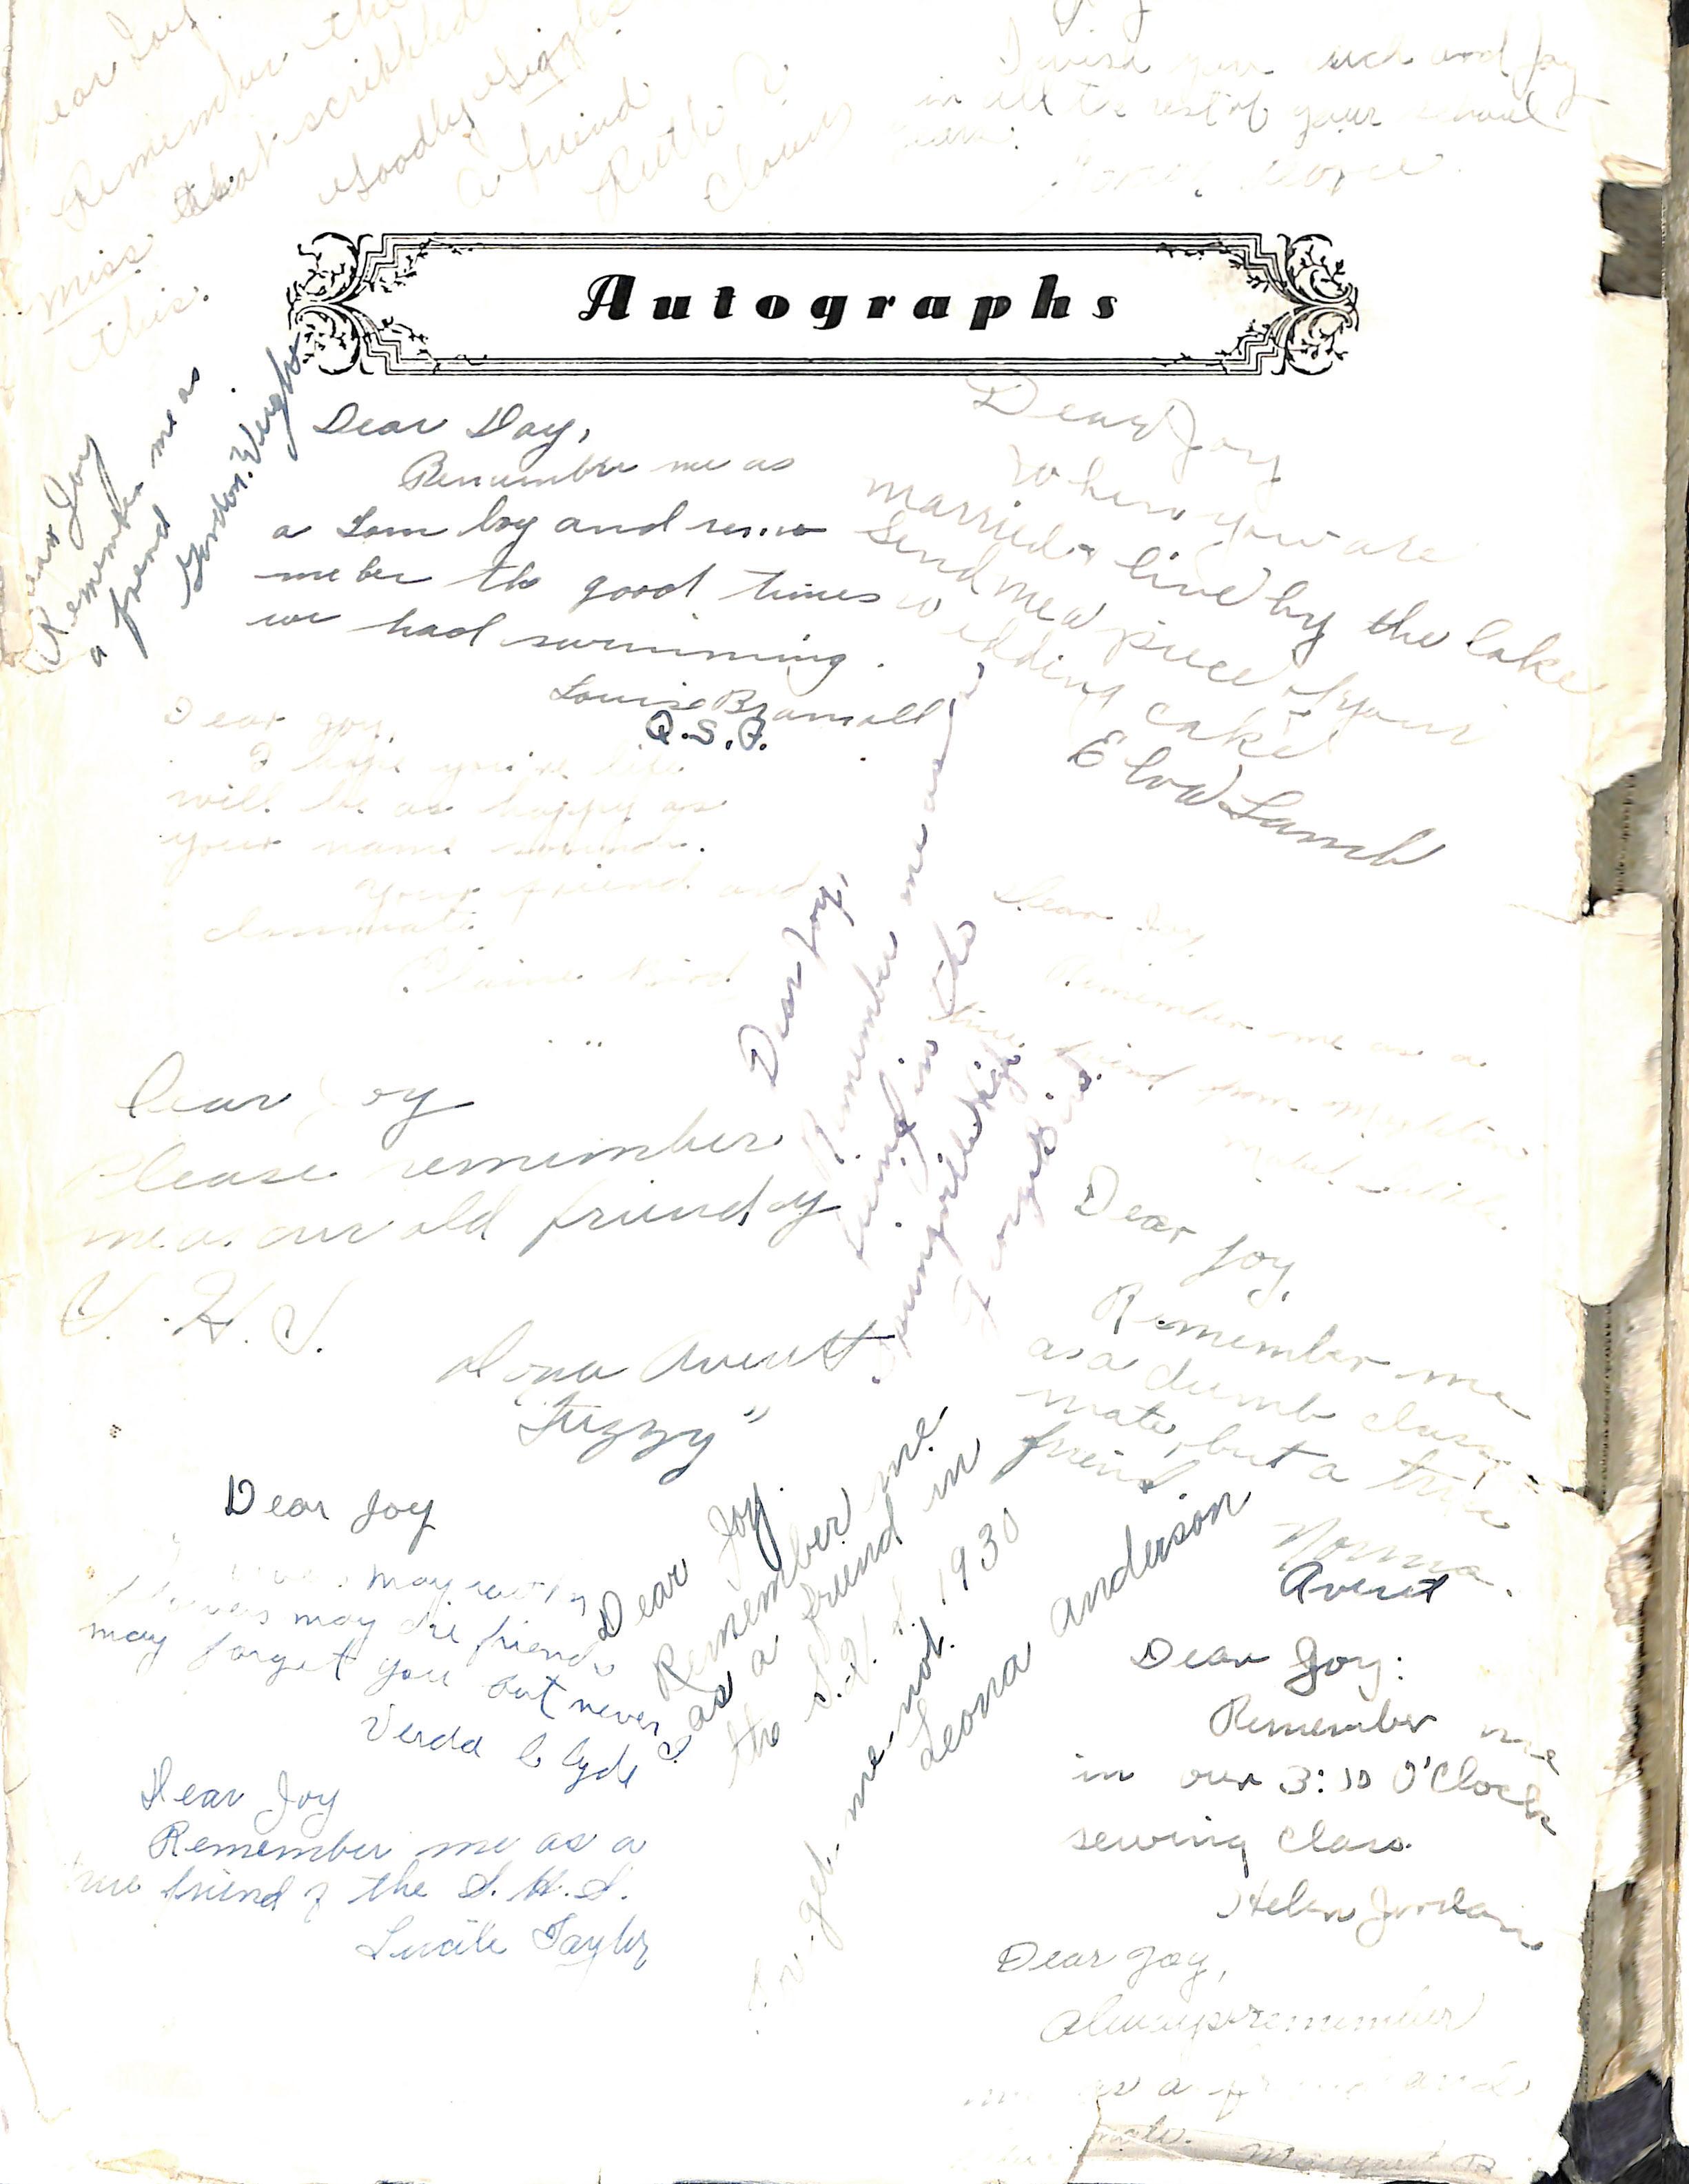 Dear Joy
Remember the
miss that scribbled
this.
Goodly Giggles
a friend
Ruth
I wish you luck and Joy
in all the rest of your school
years.
Autographs
Dear Joy
Remember me as
a friend
Gordon Weight
Dear Day,
Remember me as
a Tom boy and rem
member the good times
we had swimming.
Louise Bramall
Q.S.P.
Dear Joy
When you are
married & live by the lake
Send me a piece of your
wedding cake
Elva Lamb
Dear Joy,
I hope you're life
will be as happy as
your name sounds.
Your friend and
classmate
Elaine
Dear Joy,
Remember me as a
friend in the
Springville High
Georgia Bird.
Dear Joy
Remember me as a
true friend from Mapleton
Dear Joy
Please remember
me as our old friend of
S.H.S.
Averett
"Fuzzy"
Dear Joy,
Remember me
as a dumb class
mate, but a true
friend
Norma
Averett
Dear Joy
may
may die friends
may forget you but never I
Verda Clyde
Dear Joy.
Remember me
as a friend in
the S.H.S. 1930
Leona Anderson
Forget-me-not.
Dear Joy:
Remember me
in our 3:10 O'Clock
sewing class.
Helen Jordan
Dear Joy
Remember me as a
true friend of the S.H.S.
Lucile Taylor
Dear Joy,
Always remember
me as a friend and
mate.
Margaret B